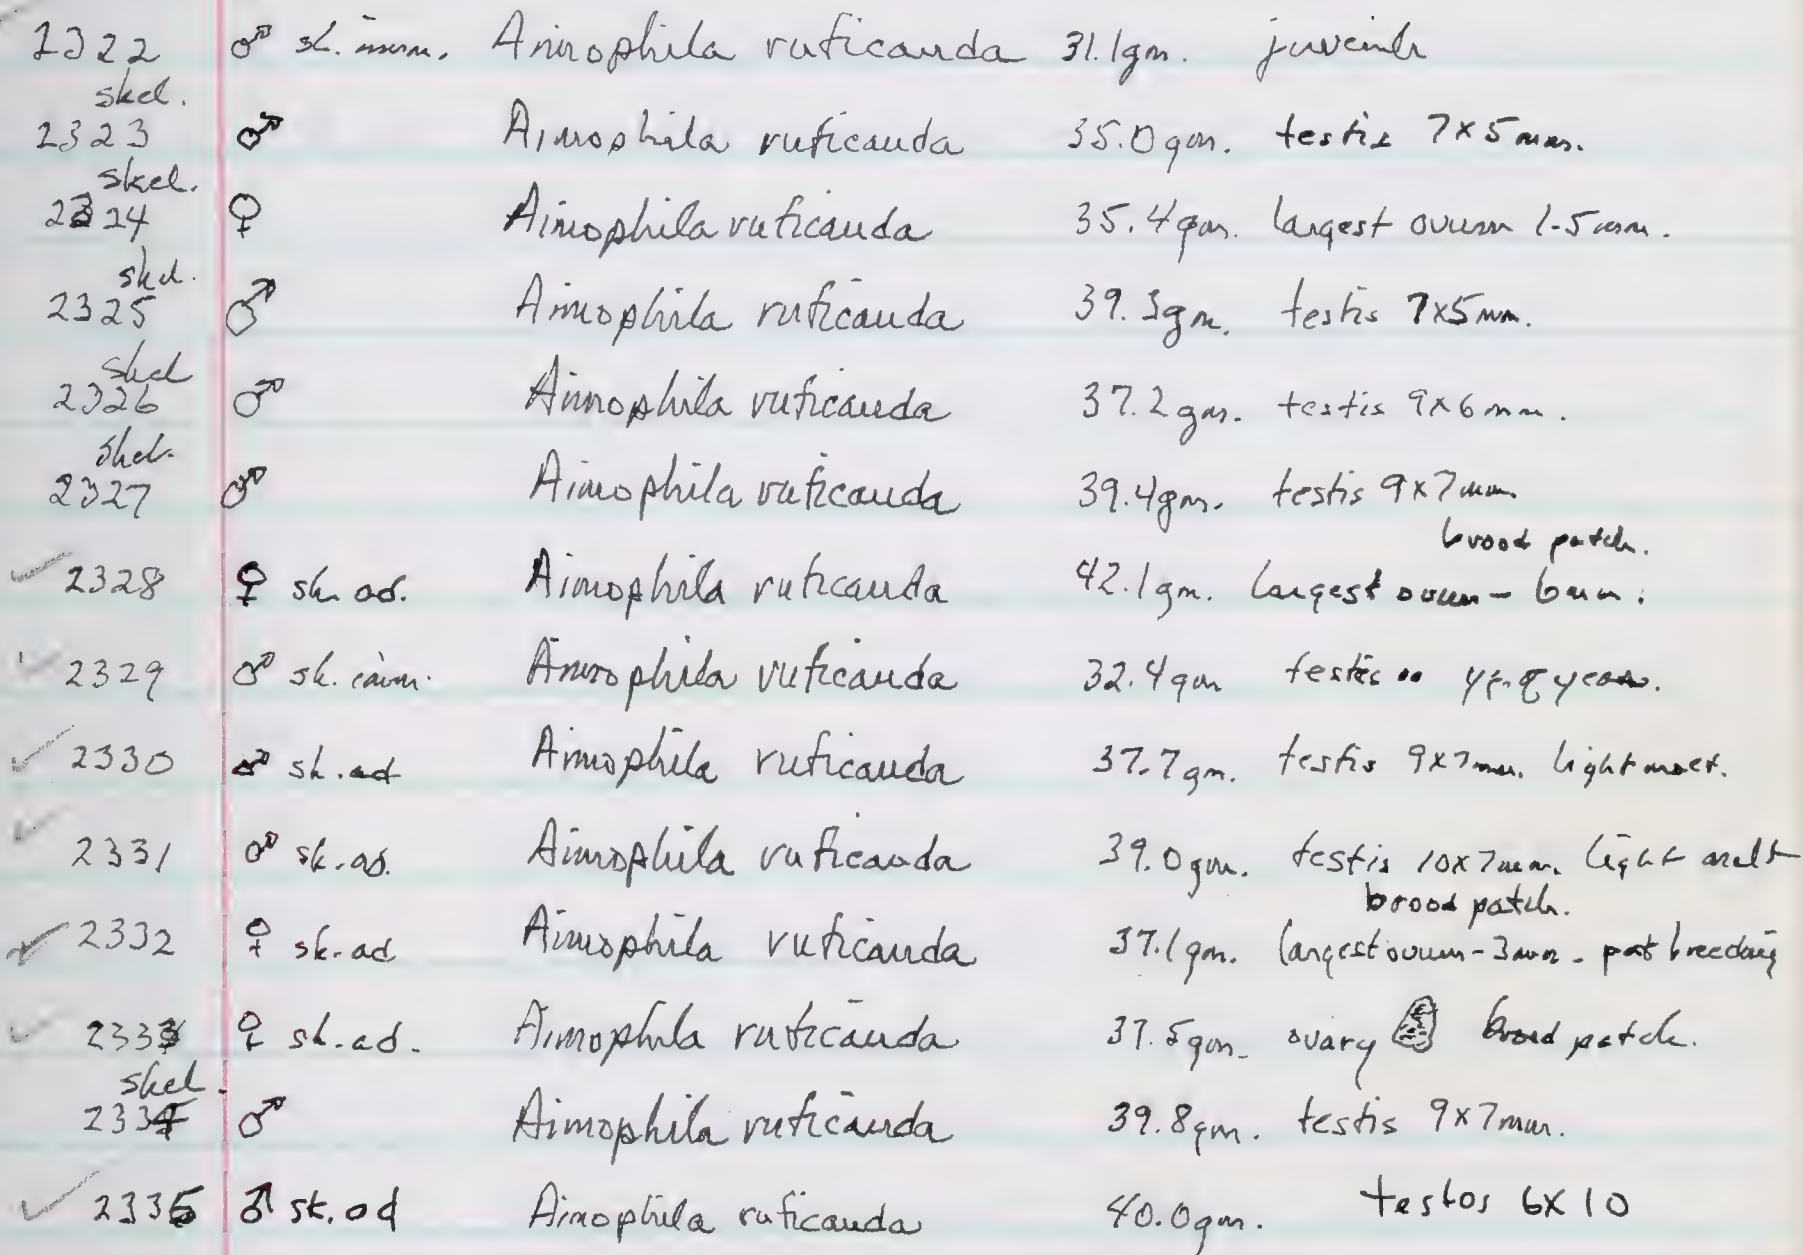 2322 ♂ sk. imm. Aimophila ruficauda 31.1gm. juvenile
skel.
2323 ♂ Aimophila ruficauda 35.0gm. testis 7x5mm.
skel.
2324 ♀ Aimophila ruficauda 35.4gm. largest ovum 1.5mm.
skel.
2325 ♂ Aimophila ruficauda 39.3gm. testis 7x5mm.
skel
2326 ♂ Aimophila ruficauda 37.2gm. testis 9x6mm.
skel.
2327 ♂ Aimophila ruficauda 39.4gm. testis 9x7mm
brood patch.
2328 ♀ sk. ad. Aimophila ruficauda 42.1gm. largest ovum - 6mm.
2329 ♂ sk. imm. Aimophila ruficauda 32.4gm testis
2330 ♂ sk. ad Aimophila ruficauda 37.7gm. testis 9x7mm. light molt.
2331 ♂ sk. ad. Aimophila ruficauda 39.0gm. testis 10x7mm. light molt
brood patch.
2332 ♀ sk. ad Aimophila ruficauda 37.1gm. largest ovum - 3mm. post breeding
2333 ♀ sk. ad. Aimophila ruficauda 37.5gm. ovary brood patch.
skel.
2334 ♂ Aimophila ruficauda 39.8gm. testis 9x7mm.
2335 ♂ sk. ad Aimophila ruficauda 40.0gm. testos 6x10